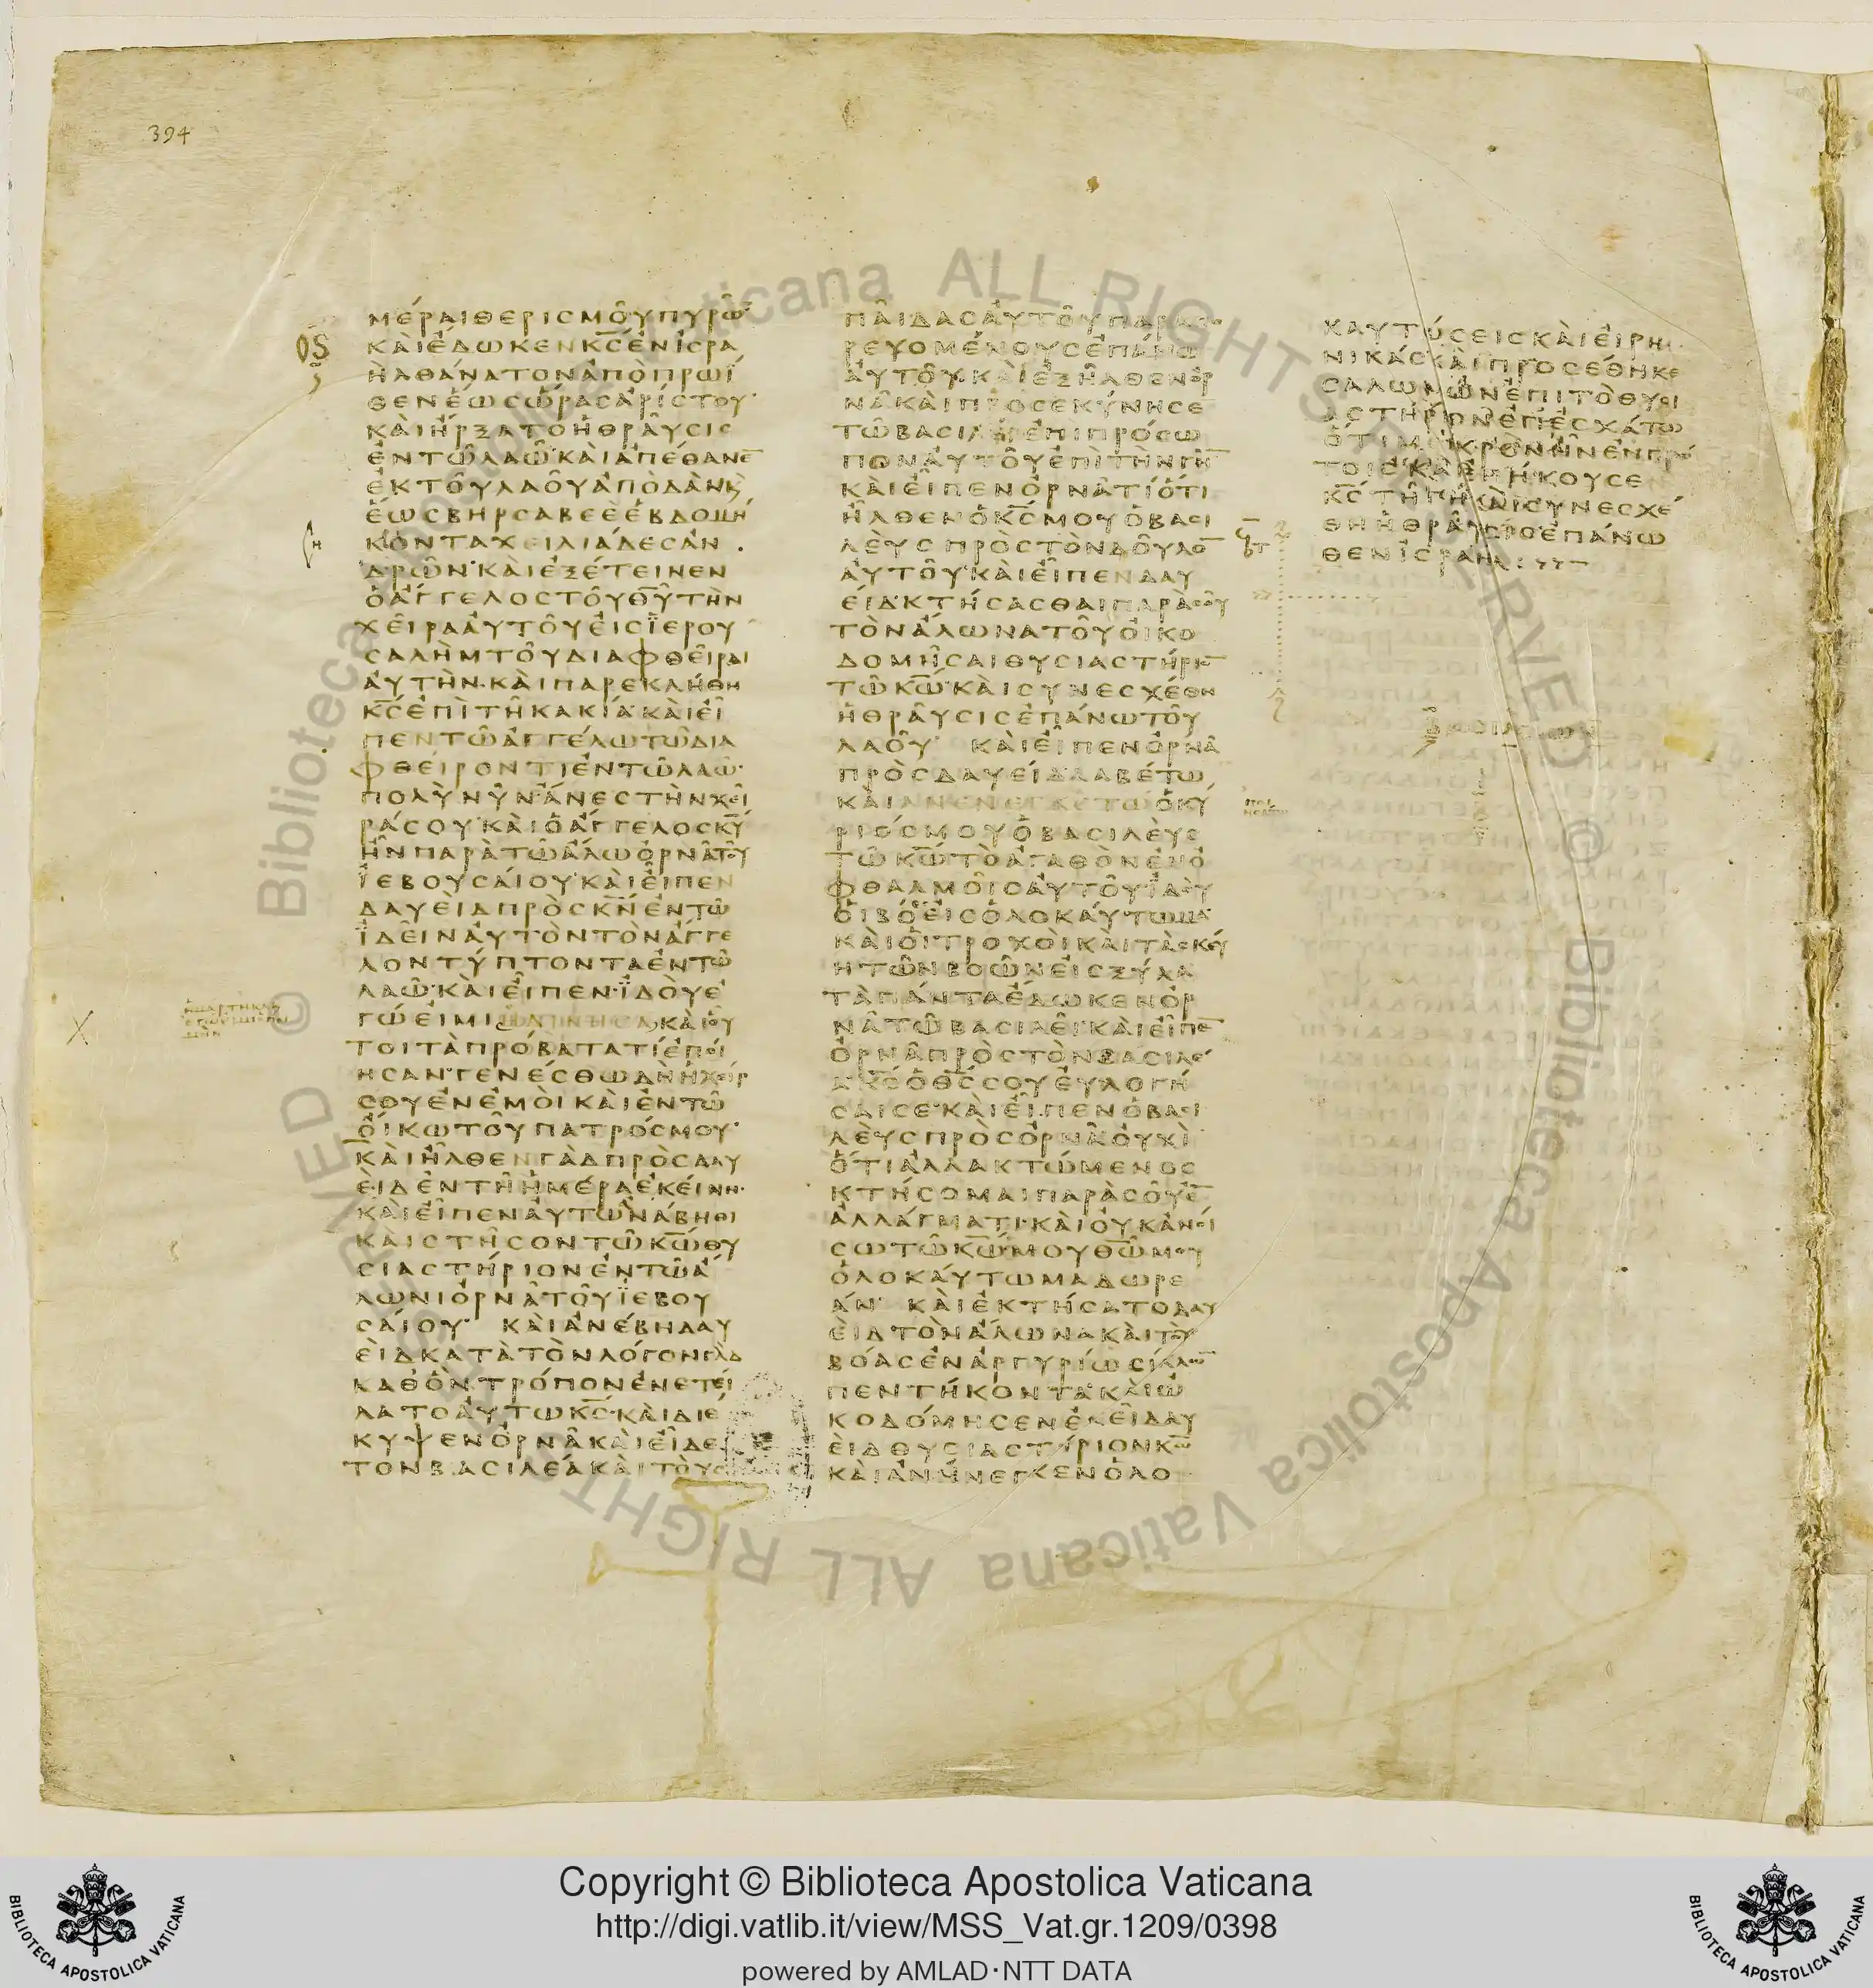 394
ΜΕΡΑΙΘΕΡΙΣΜΟΥΠΥΡΩ̅
ΚΑΙΕΔΩΚΕΝΚ̅Σ̅ΕΝΙΣΡΑ
ΗΛΘΑΝΑΤΟΝΑΠΟΠΡΩΙ
ΘΕΝΕΩΣΩΡΑΣΑΡΙΣΤΟΥ
ΚΑΙΗΡΞΑΤΟΗΘΡΑΥΣΙΣ
ΕΝΤΩΛΑΩΚΑΙΑΠΕΘΑΝΕ̅
ΕΚΤΟΥΛΑΟΥΑΠΟΔΑΝΚ
ΕΩΣΒΗΡΣΑΒΕΕΕΒΔΟΜΗ
ΚΟΝΤΑΧΕΙΛΙΑΔΕΣΑΝ
ΔΡΩΝΚΑΙΕΞΕΤΕΙΝΕΝ
ΟΑΓΓΕΛΟΣΤΟΥΘ̅Υ̅ΤΗΝ
ΧΕΙΡΑΑΥΤΟΥΕΙΣΙΕΡΟΥ
ΣΑΛΗΜΤΟΥΔΙΑΦΘΕΙΡΑΙ
ΑΥΤΗΝΚΑΙΠΑΡΕΚΛΗΘΗ
Κ̅Σ̅ΕΠΙΤΗΚΑΚΙΑΚΑΙΕΙ
ΠΕΝΤΩΑΓΓΕΛΩΤΩΔΙΑ
ΦΘΕΙΡΟΝΤΙΕΝΤΩΛΑΩ
ΠΟΛΥΝΥΝΑΝΕΣΤΗΝΧΕΙ
ΡΑΣΟΥΚΑΙΟΑΓΓΕΛΟΣΚ̅Υ̅
ΗΝΠΑΡΑΤΩΑΛΩΟΡΝΑΤΟΥ
ΙΕΒΟΥΣΑΙΟΥΚΑΙΕΙΠΕΝ
ΔΑΥΕΙΔΠΡΟΣΚ̅Ν̅ΕΝΤΩ
ΙΔΕΙΝΑΥΤΟΝΤΟΝΑΓΓΕ
ΛΟΝΤΥΠΤΟΝΤΑΕΝΤΩ
ΛΑΩΚΑΙΕΙΠΕΝΙΔΟΥΕ
ΓΩΕΙΜΙΗΔΙΚΗΣΑΚΑΙΟΥ
ΤΟΙΤΑΠΡΟΒΑΤΑΤΙΕΠΟΙ
ΗΣΑΝΓΕΝΕΣΘΩΔΗΗΧΕΙΡ
ΣΟΥΕΝΕΜΟΙΚΑΙΕΝΤΩ
ΟΙΚΩΤΟΥΠΑΤΡΟΣΜΟΥ
ΚΑΙΗΛΘΕΝΓΑΔΠΡΟΣΔΑΥ
ΕΙΔΕΝΤΗΗΜΕΡΑΕΚΕΙΝΗ
ΚΑΙΕΙΠΕΝΑΥΤΩΑΝΑΒΗΘΙ
ΚΑΙΣΤΗΣΟΝΤΩΚ̅Ω̅ΘΥ
ΣΙΑΣΤΗΡΙΟΝΕΝΤΩΑ
ΛΩΝΙΟΡΝΑΤΟΥΙΕΒΟΥ
ΣΑΙΟΥ ΚΑΙΑΝΕΒΗΔΑΥ
ΕΙΔΚΑΤΑΤΟΝΛΟΓΟΝΓΑΔ
ΚΑΘΟΝΤΡΟΠΟΝΕΝΕΤΕΙ
ΛΑΤΟΑΥΤΩΚ̅Σ̅ΚΑΙΔΙΕ
ΚΥΨΕΝΟΡΝΑΚΑΙΕΙΔΕ
ΤΟΝΒΑΣΙΛΕΑΚΑΙΤΟΥΣ
ΠΑΙΔΑΣΑΥΤΟΥΠΑΡΑΠΟ
ΡΕΥΟΜΕΝΟΥΣΕΠΑΝΩ
ΑΥΤΟΥΚΑΙΕΞΗΛΘΕΝΟΡ
ΝΑΚΑΙΠΡΟΣΕΚΥΝΗΣΕ
ΤΩΒΑΣΙΛΕΙΕΠΙΠΡΟΣΩ
ΠΟΝΑΥΤΟΥΕΠΙΤΗΝΓΗ̅
ΚΑΙΕΙΠΕΝΟΡΝΑΤΙΟΤΙ
ΗΛΘΕΝΟΚ̅Σ̅ΜΟΥΟΒΑΣΙ
ΛΕΥΣΠΡΟΣΤΟΝΔΟΥΛΟ̅
ΑΥΤΟΥΚΑΙΕΙΠΕΝΔΑΥ
ΕΙΔΚΤΗΣΑΣΘΑΙΠΑΡΑΣΟΥ
ΤΟΝΑΛΩΝΑΤΟΥΟΙΚΟ
ΔΟΜΗΣΑΙΘΥΣΙΑΣΤΗΡΙΟ̅
ΤΩΚ̅Ω̅ΚΑΙΣΥΝΕΣΧΕΘΗ
ΗΘΡΑΥΣΙΣΕΠΑΝΩΤΟΥ
ΛΑΟΥ ΚΑΙΕΙΠΕΝΟΡΝΑ
ΠΡΟΣΔΑΥΕΙΔΛΑΒΕΤΩ
ΚΑΙΑΝΕΝΕΓΚΕΤΩΟΚΥ
ΡΙΟΣΜΟΥΟΒΑΣΙΛΕΥΣ
ΤΩΚ̅Ω̅ΤΟΑΓΑΘΟΝΕΝΟ
ΦΘΑΛΜΟΙΣΑΥΤΟΥΙΔΟΥ
ΟΙΒΟΕΣΕΙΣΟΛΟΚΑΥΤΩΜΑ
ΚΑΙΟΙΤΡΟΧΟΙΚΑΙΤΑΣΚΕΥ
ΗΤΩΝΒΟΩΝΕΙΣΞΥΛΑ
ΤΑΠΑΝΤΑΕΔΩΚΕΝΟΡ
ΝΑΤΩΒΑΣΙΛΕΙΚΑΙΕΙΠΕ̅
ΟΡΝΑΠΡΟΣΤΟΝΒΑΣΙΛΕ
ΑΚ̅Σ̅ΟΘ̅Σ̅ΣΟΥΕΥΛΟΓΗ
ΣΑΙΣΕΚΑΙΕΙΠΕΝΟΒΑΣΙ
ΛΕΥΣΠΡΟΣΟΡΝΑΟΥΧΙ
ΟΤΙΑΛΛΑΚΤΩΜΕΝΟΣ
ΚΤΗΣΟΜΑΙΠΑΡΑΣΟΥΕ̅
ΑΛΛΑΓΜΑΤΙΚΑΙΟΥΚΑΝΟΙ
ΣΩΤΩΚ̅Ω̅ΜΟΥΘ̅Ω̅ΜΟΥ
ΟΛΟΚΑΥΤΩΜΑΔΩΡΕ
ΑΝ ΚΑΙΕΚΤΗΣΑΤΟΔΑΥ
ΕΙΔΤΟΝΑΛΩΝΑΚΑΙΤΟΥΣ
ΒΟΑΣΕΝΑΡΓΥΡΙΩΣΙΚΛΩ̅
ΠΕΝΤΗΚΟΝΤΑΚΑΙΩ
ΚΟΔΟΜΗΣΕΝΕΚΕΙΔΑΥ
ΕΙΔΘΥΣΙΑΣΤΗΡΙΟΝΚ̅Ω̅
ΚΑΙΑΝΗΝΕΓΚΕΝΟΛΟ
ΚΑΥΤΩΣΕΙΣΚΑΙΕΙΡΗ
ΝΙΚΑΣΚΑΙΠΡΟΣΕΘΗΚΕ
ΣΑΛΩΜΩΝΕΠΙΤΟΘΥΣΙ
ΑΣΤΗΡΙΟΝΕΠΕΣΧΑΤΩ
ΟΤΙΜΙΚΡΟΝΗΝΕΝΠΡΩ
ΤΟΙΣΚΑΙΕΠΗΚΟΥΣΕ
Κ̅Σ̅ΤΗΓΗΚΑΙΣΥΝΕΣΧΕ
ΘΗΗΘΡΑΥΣΙΣΕΠΑΝΩ
ΘΕΝΙΣΡΑΗΛ
ΒΑΣΙΛΕΙΩΝ
Copyright © Biblioteca Apostolica Vaticana
http://digi.vatlib.it/view/MSS_Vat.gr.1209/0398
powered by AMLAD·NTT DATA
BIBLIOTECA APOSTOLICA VATICANA
BIBLIOTECA APOSTOLICA VATICANA
© Biblioteca Apostolica Vaticana ALL RIGHTS RESERVED